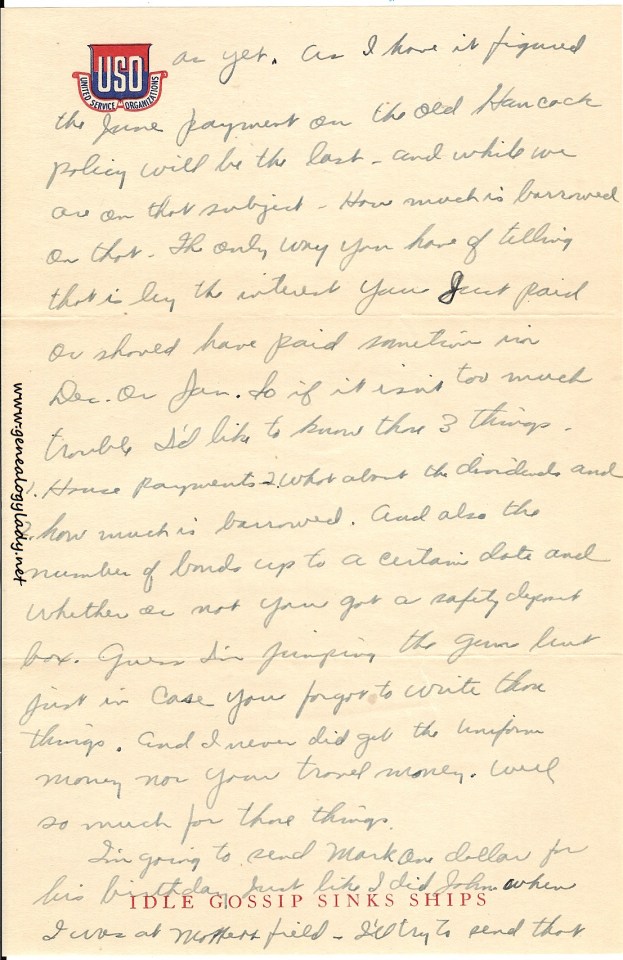 USO
UNITED SERVICE ORGANIZATIONS
as yet. As I have it figured
the June payment on the old Hancock
policy will be the last - and while we
are on that subject - How much is borrowed
on that. The only way you have of telling
that is by the interest you Just paid
or should have paid sometime in
Dec. or Jan. So if it isn't too much
trouble I'd like to know those 3 things.
1. House payments - 2. What about the dividends and
3. how much is borrowed. And also the
number of bonds up to a certain date and
whether or not you got a safety deposit
box. Guess I'm jumping the gun but
just in case you forgot to write those
things. And I never did get the uniform
money nor your travel money. Well
so much for those things.
I'm going to send Mark one dollar for
his birthday Just like I did John when
IDLE GOSSIP SINKS SHIPS
I was at field - I'll try to send that
www.genealogylady.net